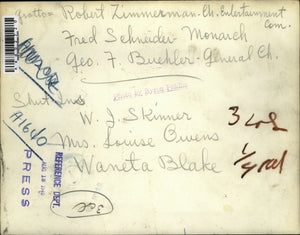 Grotto - Robert Zimmerman - Ch. Entertainment
Com.
Fred Schneider - Monarch
Geo. F. Buehler - General Ch.
Shut Ins
W. J. Skinner
Mrs. Louise Owens
Waneta Blake
3 col
A1640
REFERENCE DEPT.
PRESS